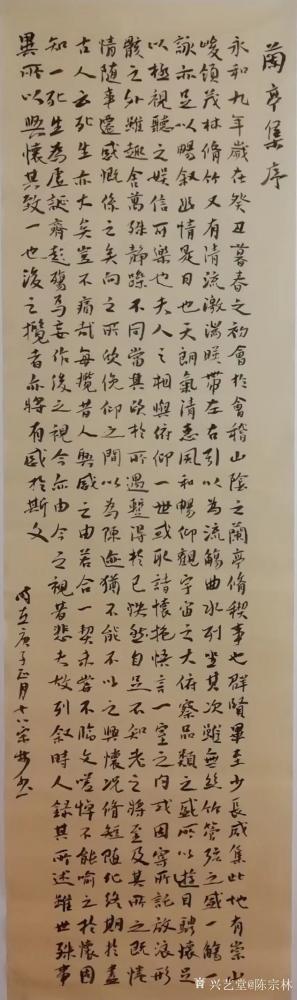 蘭亭集序
永和九年歲在癸丑暮春之初會於會稽山陰之蘭亭脩稧事也群賢畢至少長咸集此地有崇山
峻領茂林脩竹又有清流激湍暎帶左右引以為流觴曲水列坐其次雖無絲竹管弦之盛一觴一
詠亦足以暢叙幽情是日也天朗氣清惠風和暢仰觀宇宙之大俯察品類之盛所以遊目騁懷足
以極視聽之娛信可樂也夫人之相與俯仰一世或取諸懷抱悟言一室之內或因寄所託放浪形
骸之外雖趣舍萬殊靜躁不同當其欣於所遇蹔得於己怏然自足不知老之將至及其所之既惓
情隨事遷感慨係之矣向之所欣俛仰之間以為陳迹猶不能不以之興懷況脩短隨化終期於盡
古人云死生亦大矣豈不痛哉每攬昔人興感之由若合一契未嘗不臨文嗟悼不能喻之於懷固
知一死生為虛誕齊彭殤為妄作後之視今亦由今之視昔悲夫故列叙時人錄其所述雖世殊事
異所以興懷其致一也後之攬者亦將有感於斯文
時在庚子正月十八宗林書
兴艺堂@陈宗林